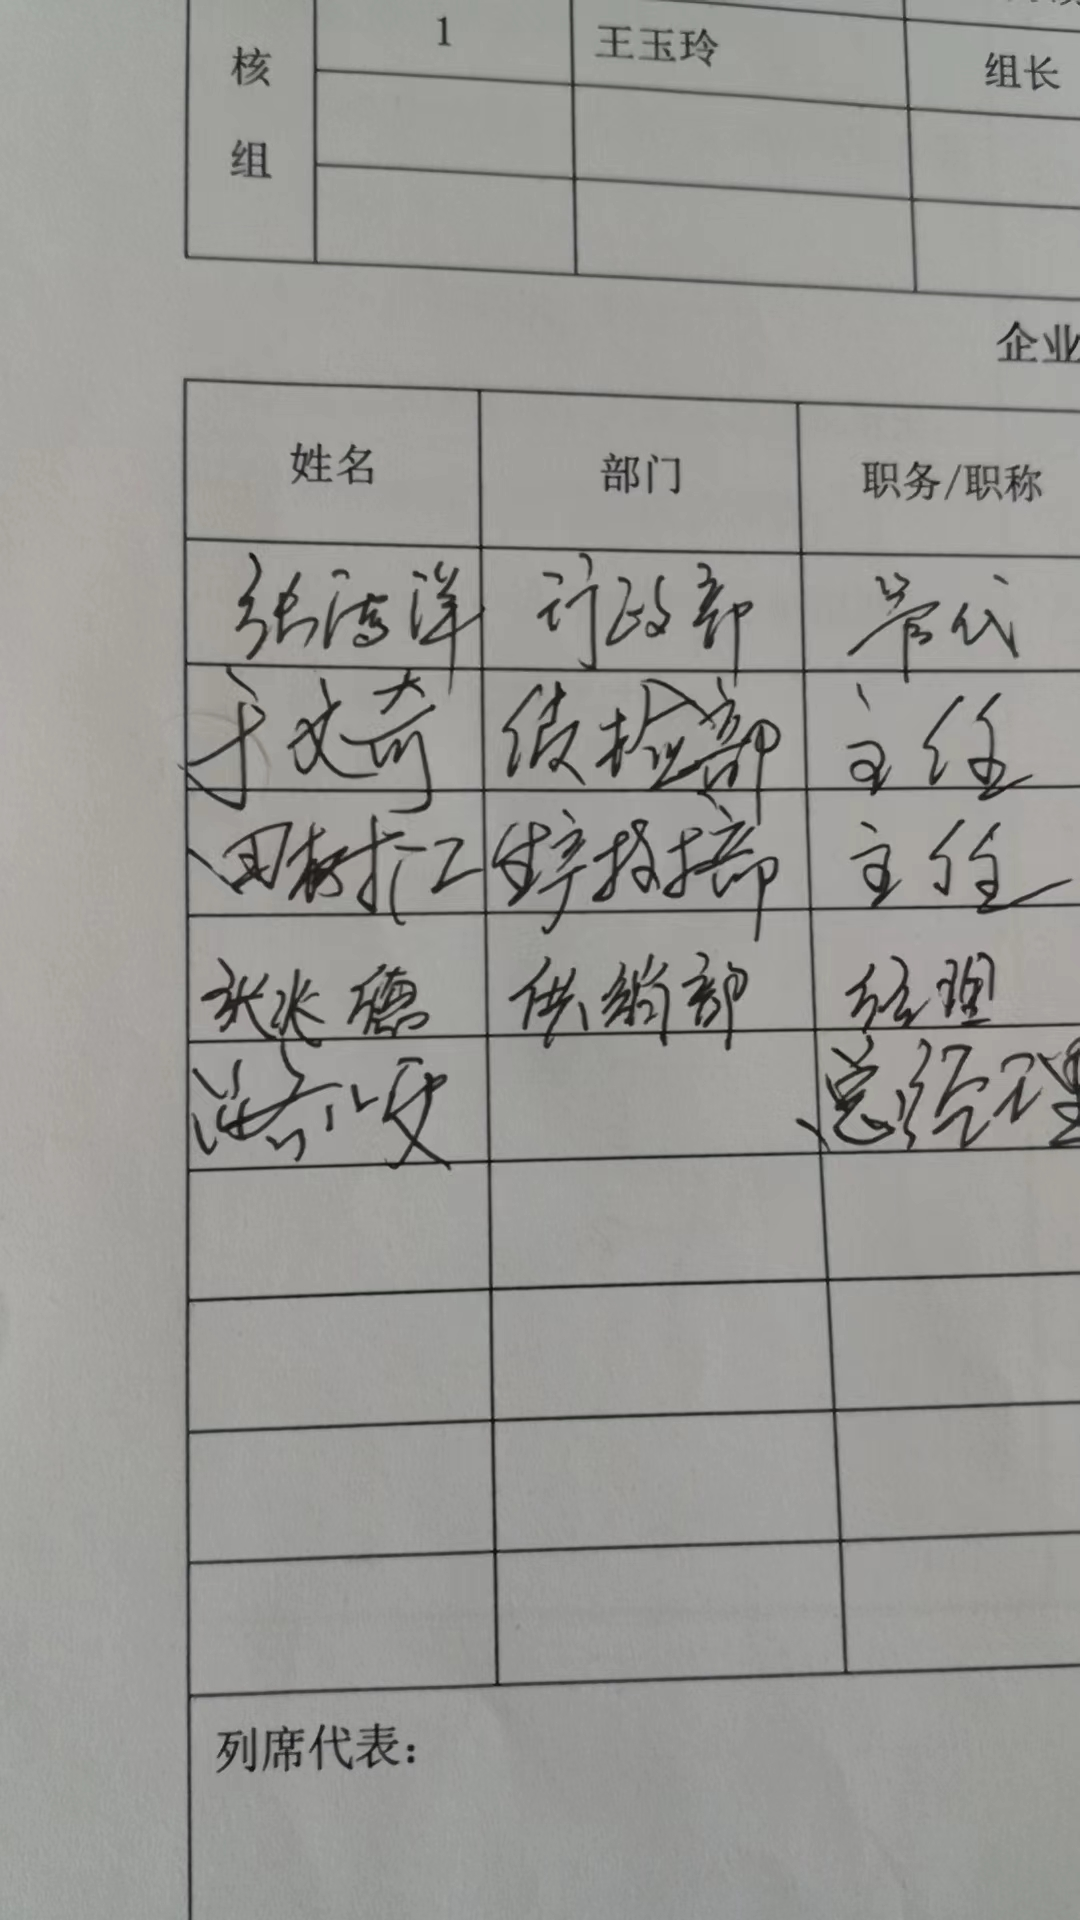 核组 1 王玉玲 组长
企业
姓名 部门 职务/职称
张海洋 行政部 管代
于文奇 质检部 主任
田树江 生产技术部 主任
张兆德 供销部 经理
总经理
列席代表：